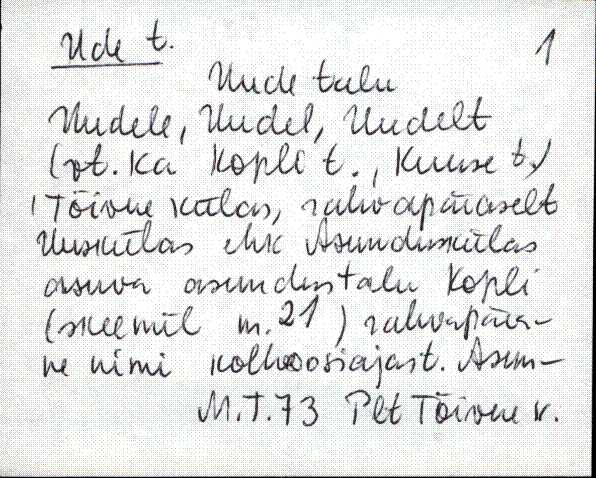 Ude t. 1
Uude talu
Uudele, Uudel, Uudelt
(vt. ka Kopli t., Kuuse t.)
Tõivere külas, rahvapäraselt
Uuskülas ehk Asunduskülas
asuva asundustalu Kopli
(skeemil nr. 21) rahvapära-
ne nimi kolhoosiajast. Asun-
M.T.73 Plt Tõivere k.